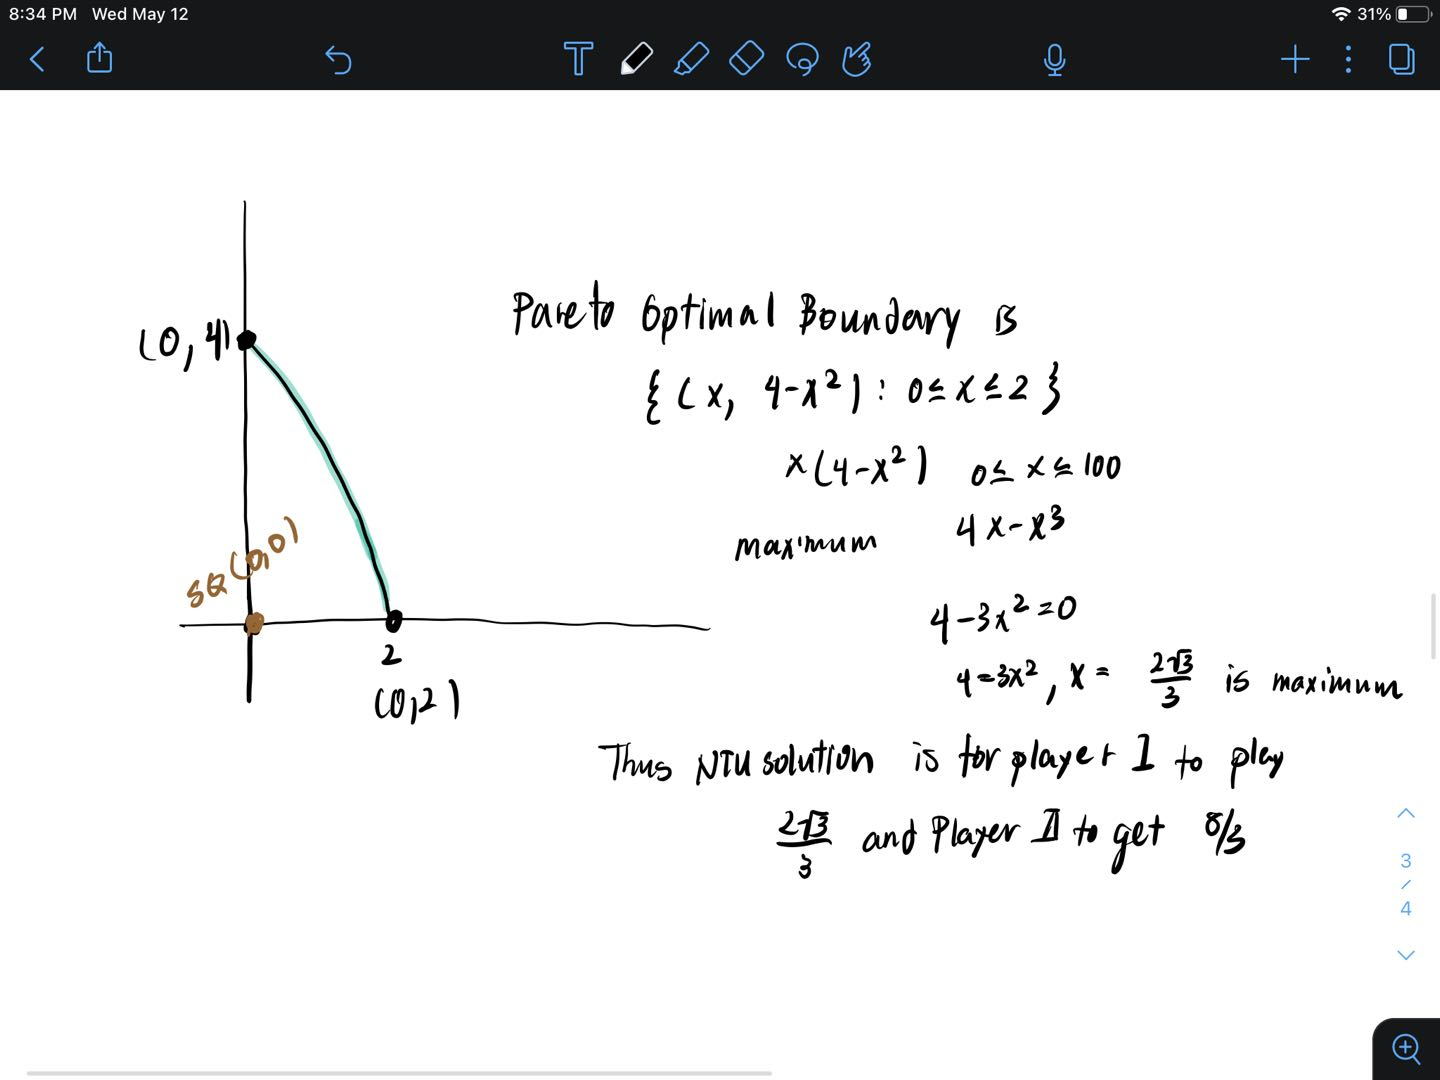 8:34 PM Wed May 12
31%
T
(0, 4)
Pareto Optimal Boundary is
{(x, 4-x²) : 0≤x≤2}
x(4-x²) 0≤x≤100
4x-x³
maximum
SQ(0,0)
4-3x²=0
2
(0,2)
4=3x², x = 2√3/3 is maximum
Thus NTU solution is for player I to play
2√3/3 and Player II to get 8/3
3
/
4